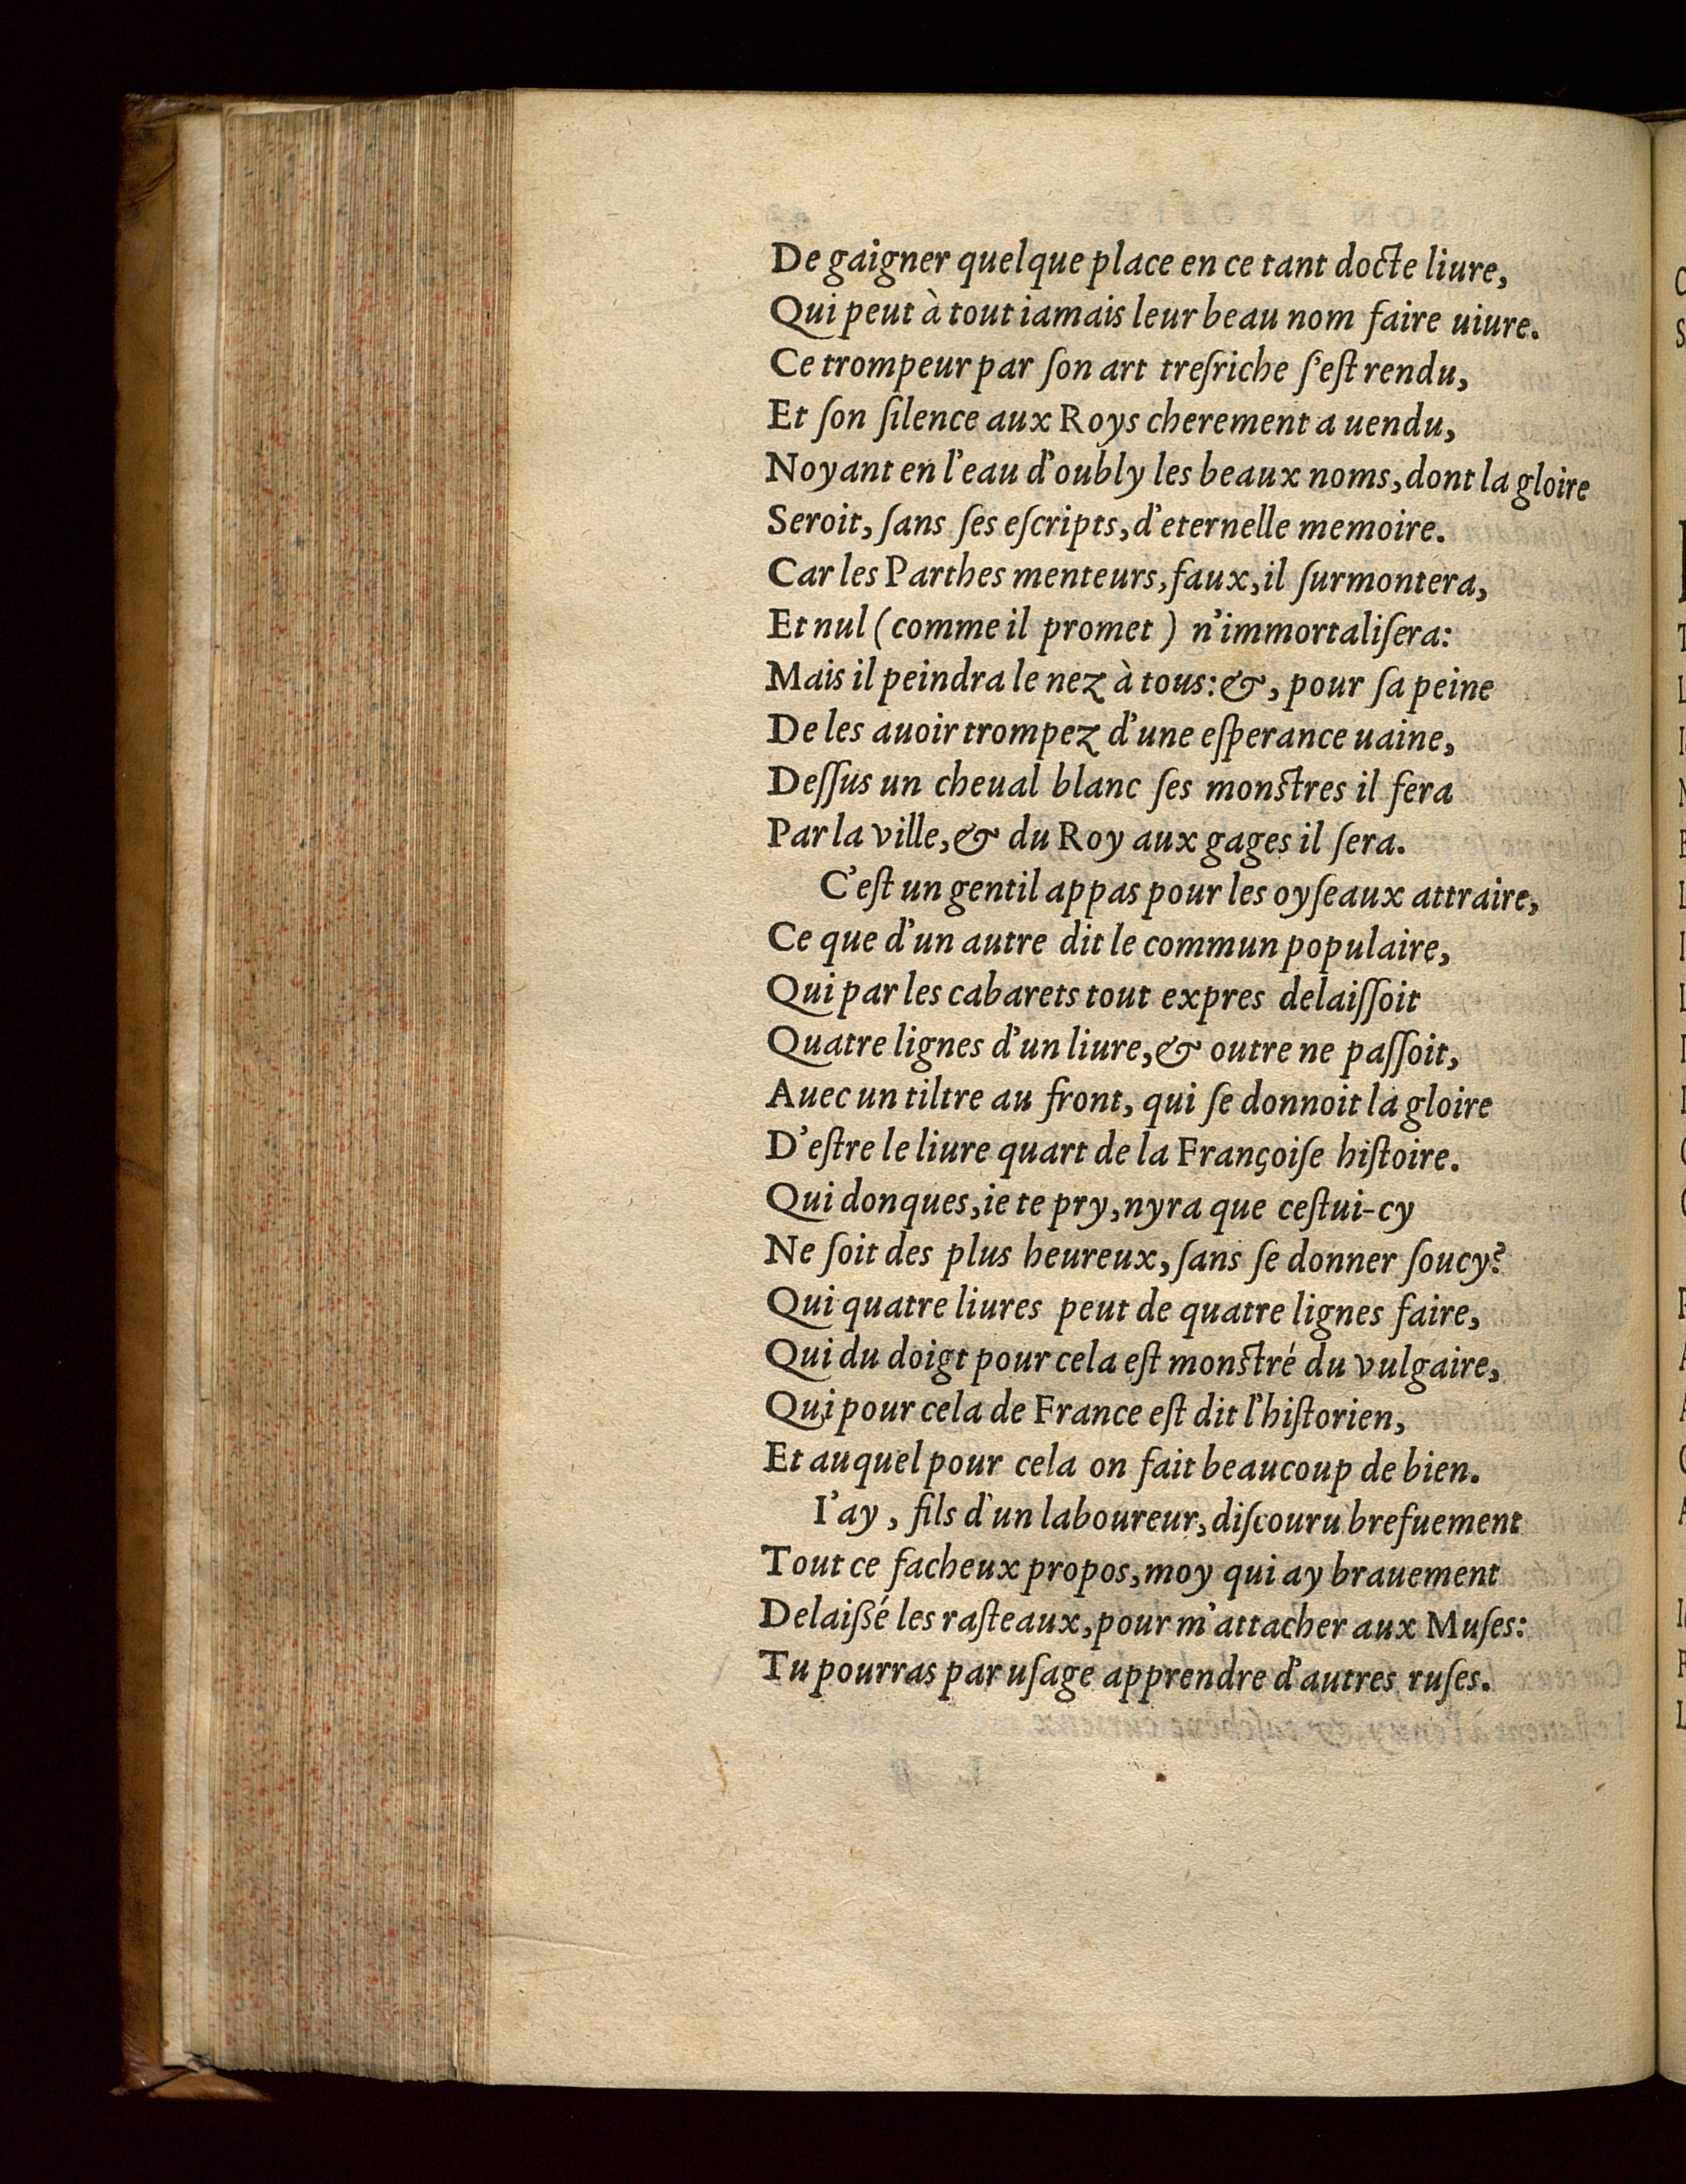 De gaigner quelque place en ce tant docte liure,
Qui peut à tout iamais leur beau nom faire uiure.
Ce trompeur par ſon art treſriche ſ'eſt rendu,
Et ſon ſilence aux Roys cherement a uendu,
Noyant en l'eau d'oubly les beaux noms, dont la gloire
Seroit, ſans ſes eſcripts, d'eternelle memoire.
Car les Parthes menteurs, faux, il ſurmontera,
Et nul (comme il promet ) n'immortaliſera:
Mais il peindra le nez à tous: &, pour ſa peine
De les auoir trompez d'une eſperance uaine,
Deſſus un cheual blanc ſes monſtres il fera
Par la ville, & du Roy aux gages il ſera.
C'eſt un gentil appas pour les oyſeaux attraire,
Ce que d'un autre dit le commun populaire,
Qui par les cabarets tout expres delaiſſoit
Quatre lignes d'un liure, & outre ne paſſoit,
Auec un tiltre au front, qui ſe donnoit la gloire
D'eſtre le liure quart de la Françoiſe hiſtoire.
Qui donques, ie te pry, nyra que ceſtui-cy
Ne ſoit des plus heureux, ſans ſe donner ſoucy?
Qui quatre liures peut de quatre lignes faire,
Qui du doigt pour cela eſt monſtré du vulgaire,
Qui pour cela de France eſt dit l'hiſtorien,
Et auquel pour cela on fait beaucoup de bien.
I'ay, fils d'un laboureur, diſcouru brefuement
Tout ce facheux propos, moy qui ay brauement
Delaiſsé les raſteaux, pour m'attacher aux Muſes:
Tu pourras par uſage apprendre d'autres ruſes.